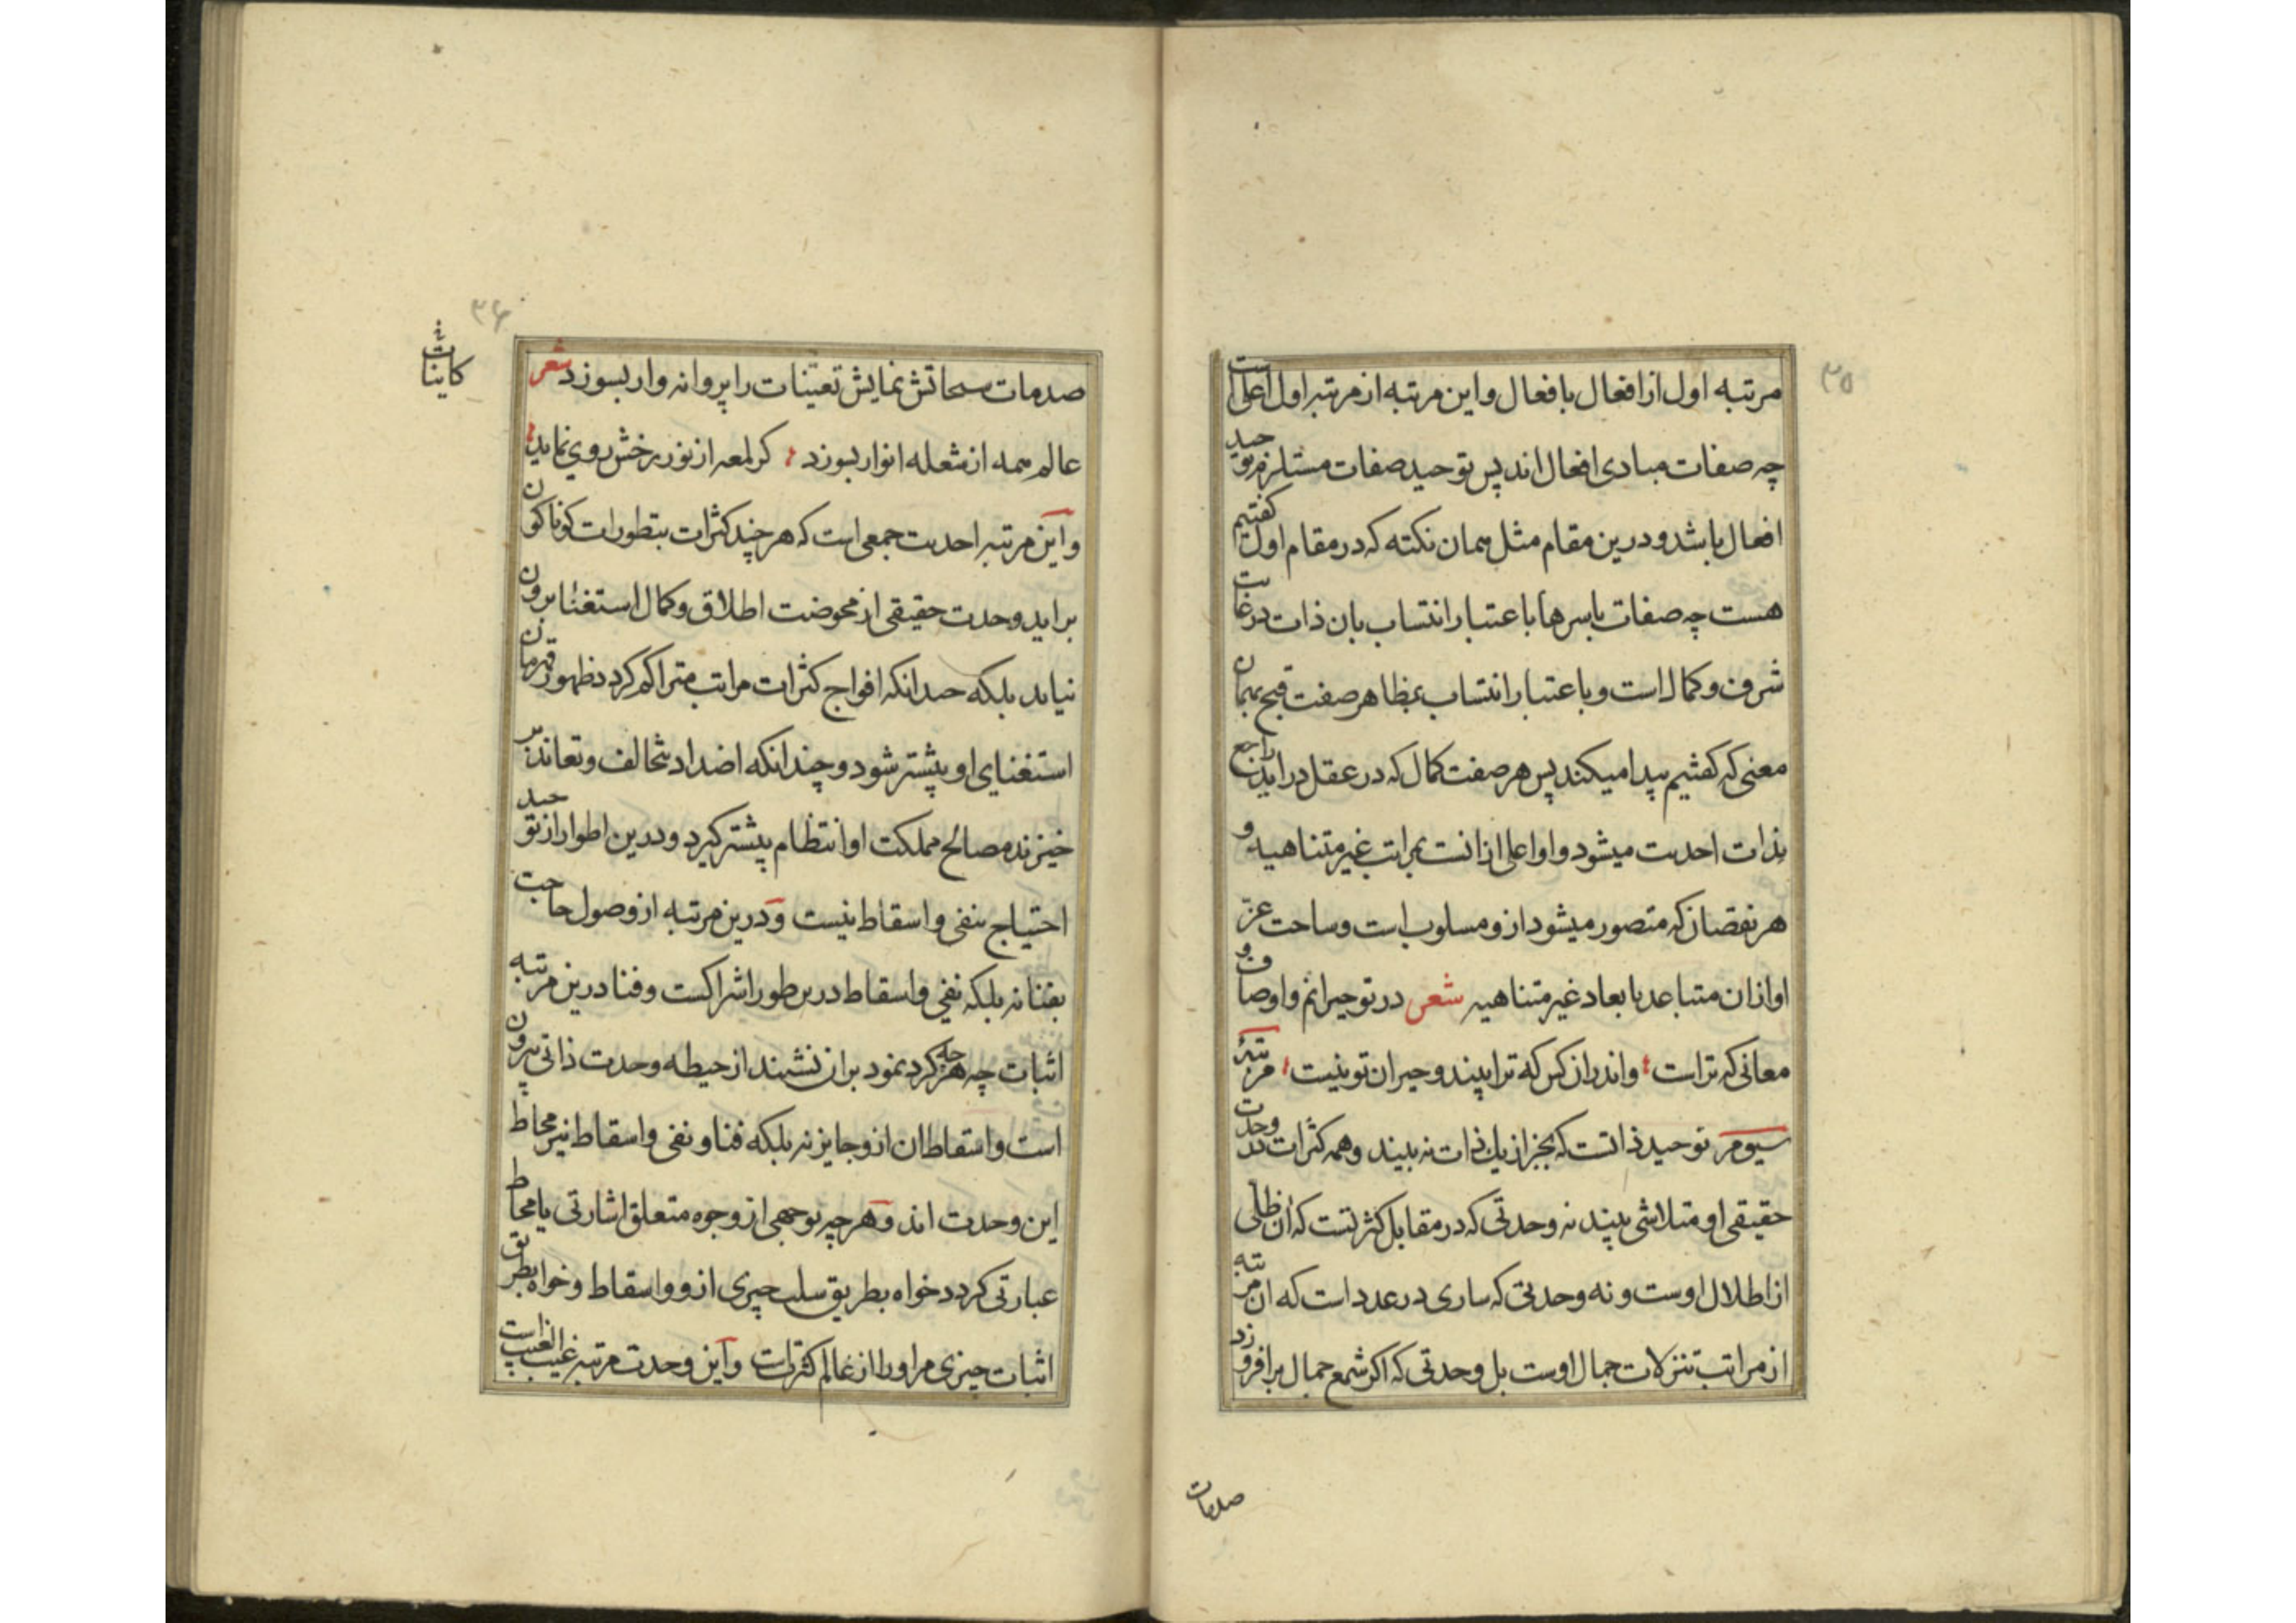 ۳۵
مرتبه اول از افعال بافعال و این مرتبه از مرتبه اول اعلی است
چه صفات مبادی افعال اند پس توحید صفات مستلزم توحید
افعال باشد و درین مقام مثل همان نکته که در مقام اول گفتیم
هست چه صفات باسرها باعتبار انتساب بان ذات در غایت
شرف و کمال است و باعتبار انتساب بمظاهر صفت قبح بهمان
معنی که کفتیم پیدا میکند پس هر صفت کمال که در عقل دراید راجع
بذات احدیت میشود و او اعلی از انست بمراتب غیر متناهیه و
هر نقصان که متصور میشود ازو مسلوب است و ساحت عز
او ازان متباعد بابعاد غیر متناهیه شعر در تو حیرانم و اوصاف و
معانی که تراست و اندران کس که ترا بیند و حیران تو نیست مرتبهٔ
سیوم توحید ذاتست که بجز از یك ذات نه بیند و همه کثرات در وحدت
حقیقی او متلاشی بیند نه وحدتی که در مقابل کثرتست که ان ظلی
از اظلال اوست و نه وحدتی که ساری در عدد است که ان مرتبه
از مراتب تنزلات جمال اوست بل وحدتی که اکر شمع جمال برافروزد
صدمات
۳۶
صدمات سبحاتش نمایش تعینات را پروانه وار بسوزد شعر
عالم همه از شعله انوار بسوزد کر لمعه از نور رخش روی نماید
و این مرتبه احدیت جمعی است که هر چند کثرات بتطورات کوناکون
براید وحدت حقیقی از محوضت اطلاق و کمال استغنا برون
نیاید بلکه چندانکه افواج کثرات مراتب متراکم کردد ظهور قهرمان
استغنای او بیشتر شود و چندانکه اضداد بتخالف و تعاند بر
خیزند مصالح مملکت او انتظام بیشتر کیرد و درین اطوار از توحید
احتیاج بنفی و اسقاط نیست و درین مرتبه از وصول حاجت
بفنا نه بلکه نفی و اسقاط درین طور اشراکست و فنا درین مرتبه
اثبات چه هر چه کرد نمود بران نشیند از حیطه وحدت ذاتی بیرون
است و اسقاط ان ازو جایز نه بلکه فنا و نفی و اسقاط نیز محاط
این وحدت اند و هر چه بوجهی از وجوه متعلق اشارتی یا محاط
عبارتی کردد خواه بطریق سلب چیزی ازو و اسقاط و خواه بطریق
اثبات چیزی مر او را از عالم کثرتست و این وحدت مرتبه غیب الغیب است
کاینات